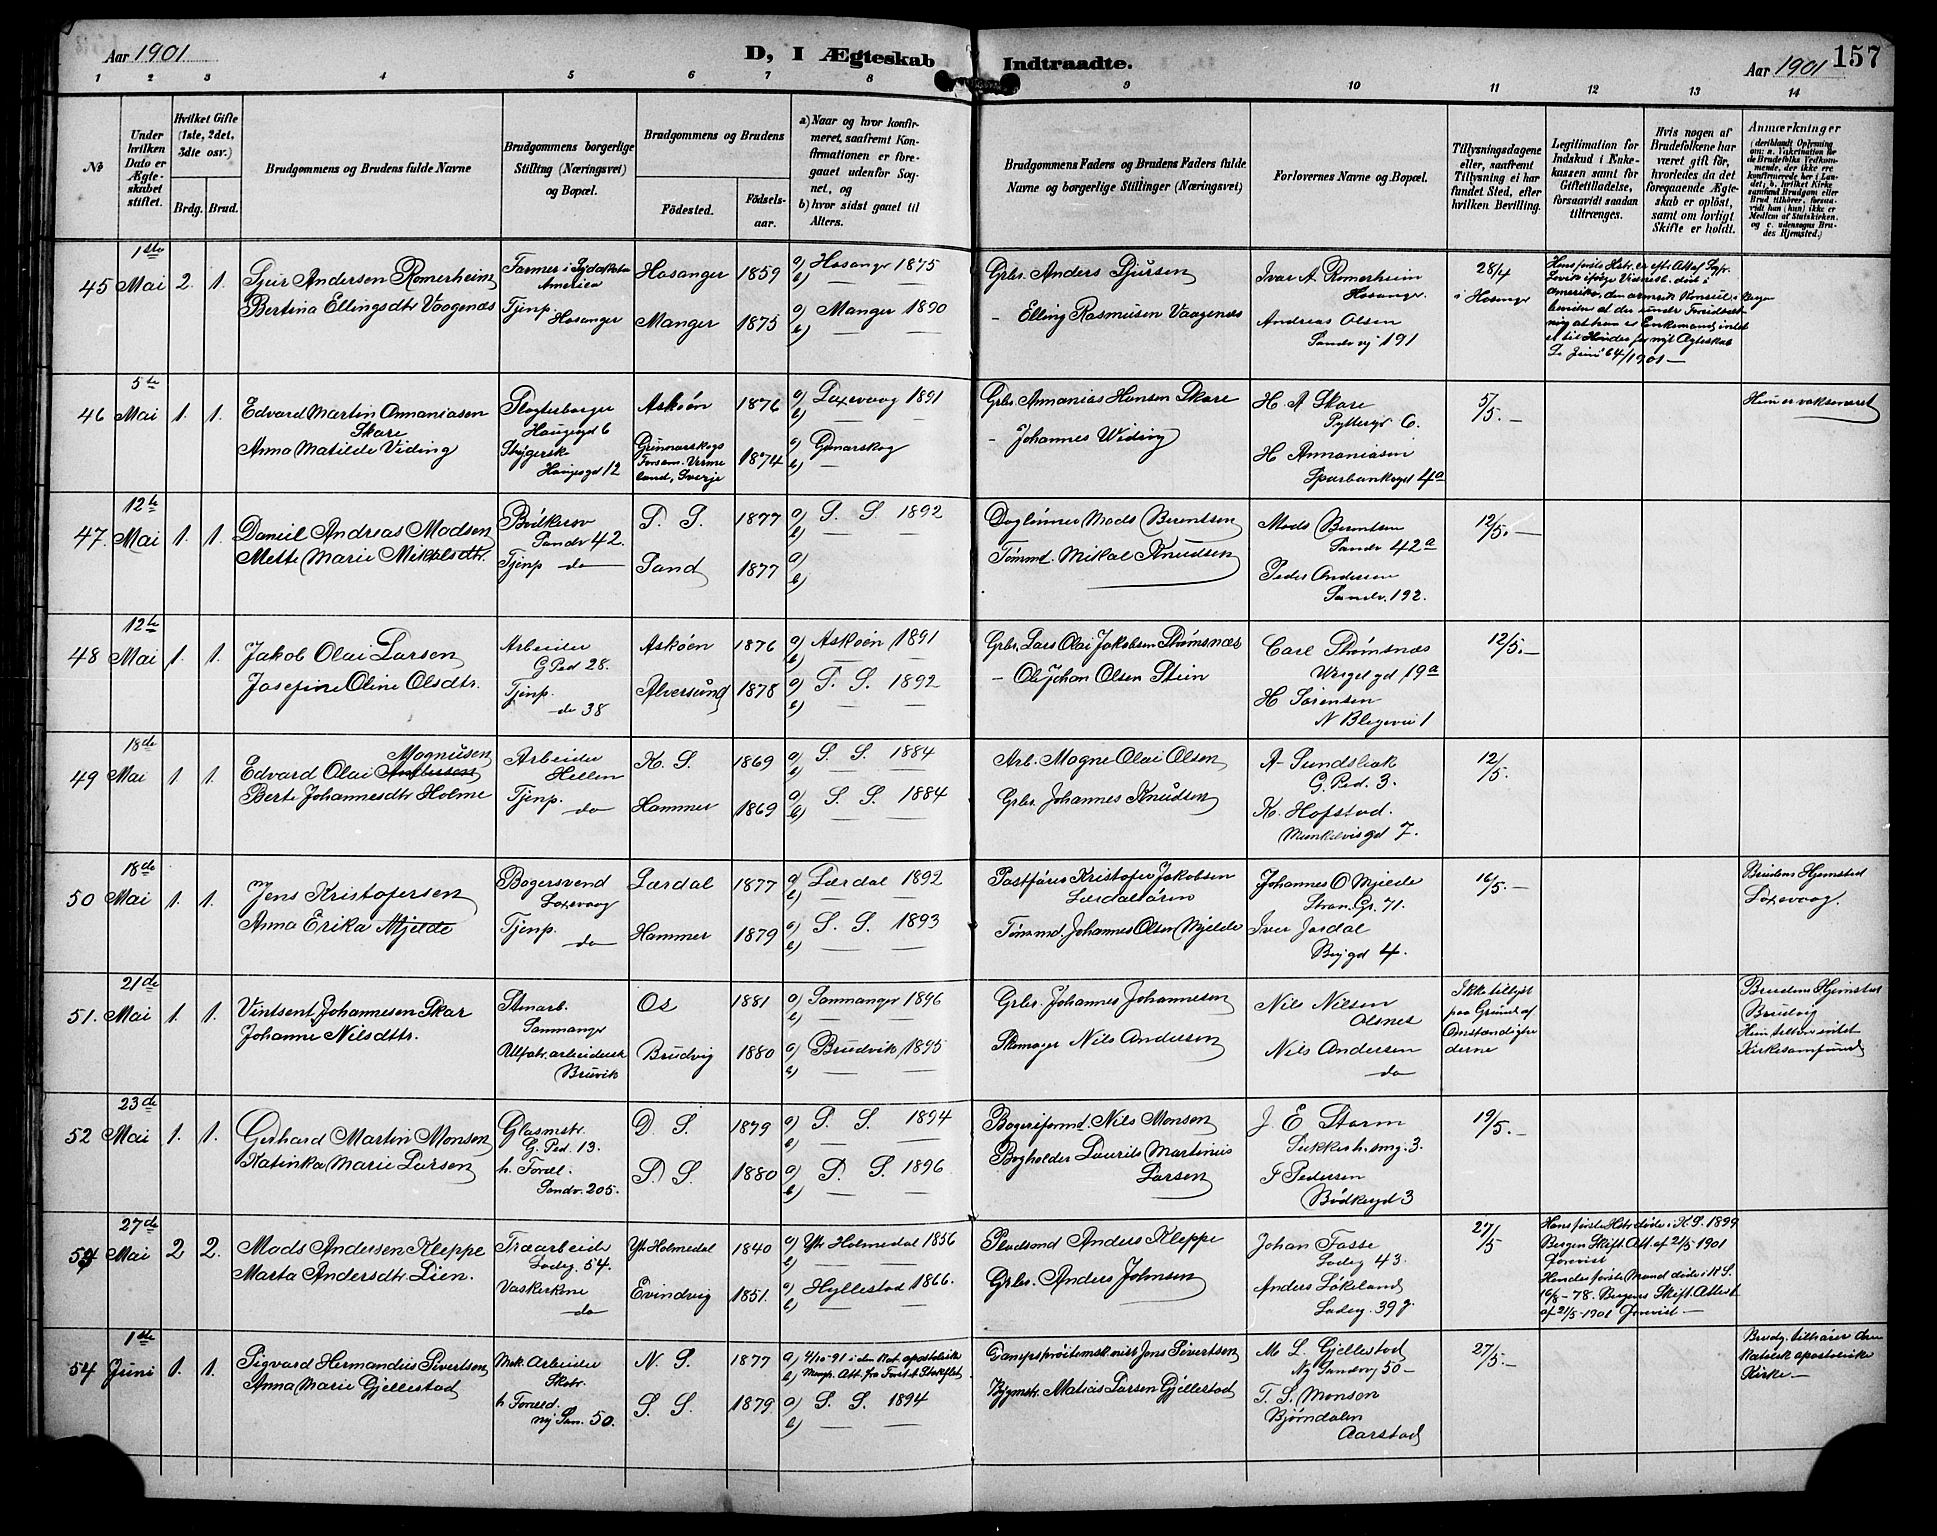 Aar 1901
D, I Ægteskab Indtraadte.
Aar 1901 157
1 2 3 4 5 6 7 8 9 10 11 12 13 14
No
Under hvilken Dato er Ægteskabet stiftet.
Hvilket Gifte (1ste, 2det, 3die osv.)
Brdg. Brud.
Brudgommens og Brudens fulde Navne
Brudgommens borgerlige Stilling (Næringsvei) og Bopæl.
Brudgommens og Brudens
Fødested.
Fødsels-aar.
a) Naar og hvor konfirmeret, saafremt Konfirmationen er foregaaet udenfor Sognet, og
b) hvor sidst gaaet til Alters.
Brudgommens Faders og Brudens Faders fulde Navne og borgerlige Stillinger (Næringsvei)
Forlovernes Navne og Bopæl.
Tillysningsdagene eller, saafremt Tillysning ei har fundet Sted, efter hvilken Bevilling.
Legitimation for Indskud i Enkekassen samt for Giftetilladelse, forsaavidt saadan tiltrænges.
Hvis nogen af Brudefolkene har været gift før, hvorledes da det foregaaende Ægteskab er opløst, samt om lovligt Skifte er holdt.
Anmærkninger
45 1ste Mai 2. 1.
Sjur Andersen Romerheim
Farmer i Sydakota America
Hosanger 1859 a) Hosangr 1875 b) —
Grbr. Anders Sjursen
Ivar A. Romerheim Hosanger.
28/4 i Hosangr
Bertina Ellingsdtr Vaagenæs
Tjenp. Hosanger
Manger 1875 a) Manger 1890 b) —
- Elling Rasmusen Vaagenæs
Andreas Olsen Sandv 191
46 5te Mai 1. 1.
Edvard Martin Annaniasen Skare
Slagterborger Haugegd 6
Askøen 1876 a) Laxevaag 1891 b) —
Grbr. Annanias Hansen Skare
H. A Skare Pyttergr 6.
5/5. —
Anna Matilde Viding
Strygersk Haugegd 12
Gunnarskogs Forsam. Vermeland, Sverje 1874 a) Gunarskog b) —
- Johannes Widing
H Annaniasen Sparbankgd 4a
47. 12te Mai 1. 1.
Daniel Andreas Madsen
Bødkersv Sandv 42.
D. S. 1877 a) S. S. 1892 b) —
Daglønner Mads Berentsen
Mads Berentsen Sandv 42a
12/5. —
Mette Marie Mikalsdtr.
Tjenp do
Sand 1877 a) b)
Tømmd. Mikal Knudsen
Peder Andersen Sandv. 192.
48 12te Mai 1. 1.
Jakob Olai Larsen
Arbeider G Ped 28.
Askøen 1876 a) Askøen 1891 b) —
Grbr. Lars Olai Jakobsen Strømsnæs
Carl Strømsnæs 19a
12/5. —
Josefine Oline Olsdtr.
Tjenp. do 38
Alversund 1878 a) S. S. 1892 b) —
- Ole Johan Olsen Stein
H Sørensen N Blegevei 1
49 18de Mai 1 1.
Magnusen
Edvard Olai
Arbeider Hellen
K. S. 1869 a) S. S. 1884 b) —
Arb. Magne Olai Olsen
A. Sundsbak G. Ped. 3.
12/5.
Berte Johannesdtr Holme
Tjenp. do
Hammer 1869 a) S. S. 1884 b) —
Grbr. Johannes Knudsen
K. Hofstad. Munkelvisgd 7.
50 18de Mai 1. 1.
Jens Kristofersen
Bagersvend Laxevaag
Lærdal 1877 a) Lærdal 1892 b) —
Postfører Kristofer Jakobsen Lærdalsøren
Johannes O Mjelde Stran. Gr. 71.
16/5. —
Brudens Hjemsted Laxevaag.
Anna Erika Mjelde
Tjenp. do
Hammer 1879 a) S. S. 1893 b) —
Tømmd. Johannes Olsen Mjelde
Iver Jordal Bøgd 4.
51. 21de Mai 1. 1.
Vintsent Johannesen Skar
Stenarb. Sammanger
Os 1881 a) Sammanger 1896 b) —
Grbr. Johannes Johannesen
Nils Nilsen Olsnes
Ikke tillyst paa Grund af Omstændighederne
Brudens Hjemsted Brudvig
Johanne Nilsdttr.
Uldfabr. arbeiderske Bruvik
Brudvig 1880 a) Brudvik 1895 b) —
Skomager Nils Andersen
Nils Andersen do
Hun tilhører intet Kirkesamfund
52 23de Mai 1. 1.
Gerhard Martin Monsen
Glasmstr. G. Ped. 13.
D. S. 1879 a) S. S. 1894 b) —
Bageriformd. Nils Monsen
J. E. Storm Sukkerh.smg. 3.
19/5. —
Katinka Marie Larsen
h. Foræl. Sandv. 205.
D. S. 1880 a) D. S. 1896 b) —
Bogholder Laurits Martinius Larsen
F Pedersen Bødkergd 3
27de Mai 2 2.
Mads Andersen Kleppe
Træarbeider Ladeg. 54.
Ytr Holmedal 1840 a) Ytr Holmedal 1856 b) —
Anders Kleppe
Johan Fasse Ladeg 43.
27/5
Hans første Hstr døde i K. S. 1899 Bergen Skift. Att. af 21/5 1901 forevist
Marta Andersdtr Lien.
Vaskerkone do
Evindvig 1851. a) Hyllestad 1866. b) —
Grbr. Anders Johnsen
Anders Løkeland Ladeg. 39 g.
Hendes første Mand døde i K S. 16/8 - 78. Bergens Skift. Attest af 21/5 1901 forevist —
54 1ste Juni 1. 1.
Sigvard Hermandius Sivertsen
Mek. Arbeider Skotr.
N. S. 1877 a) 4/10 91 i den kat. apostoliske b)
Jens Sivertsen
M. L. Gjellestad Ny Sandvg 50 —
27/5. —
Brudg. tilhører den katolsk apostoliske Kirke —
Anna Marie Gjellestad
h Foræld. ny San. 50.
S. S. 1879. a) S. S. 1894 b) —
Bygmstr. Matias Larsen Gjellestad
T. S. Monson Bjørndalen Aarstad